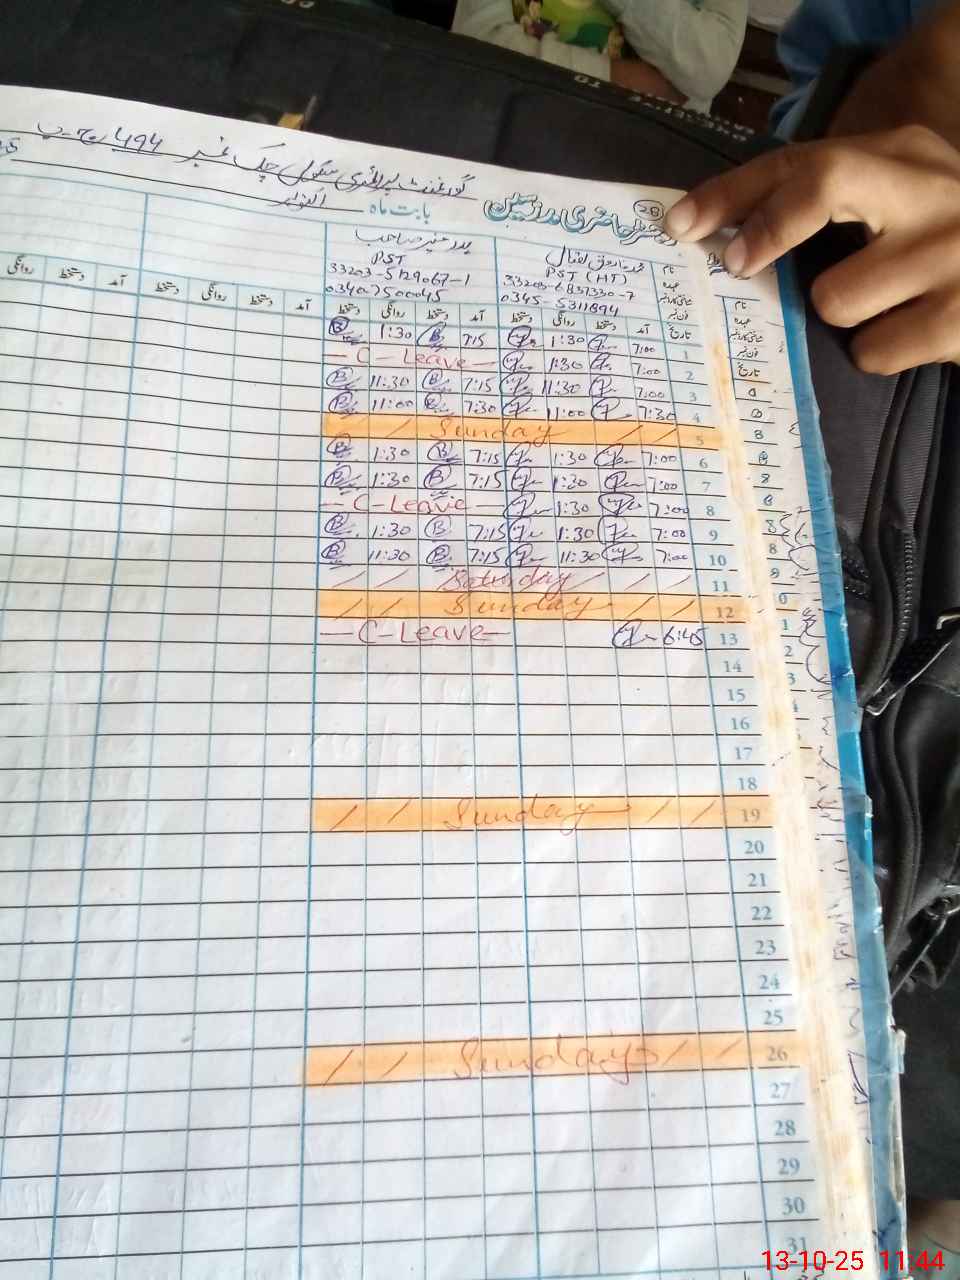 گورنمنٹ پرائمری سکول چک نمبر 494 ج-ب
28
دفتر حاضری مدرسین
بابت ماہ اکتوبر
نام
عہدہ
شناختی کارڈ نمبر
فون نمبر
PST (HT)
0345-5311894
بدر منیر صاحب
PST
33203-5129067-1
03407500045
تاریخ آمد دستخط روانگی دستخط آمد دستخط روانگی دستخط آمد دستخط روانگی دستخط آمد دستخط روانگی
1 7:00 1:30 7:15 1:30
2 7:00 1:30 — C-Leave —
3 7:00 11:30 7:15 11:30
4 7:30 11:00 7:30 11:00
5 / / Sunday / /
6 7:00 1:30 7:15 1:30
7 7:00 1:30 7:15 1:30
8 7:00 1:30 — C-Leave —
9 7:00 1:30 7:15 1:30
10 7:00 11:30 7:15 11:30
11 / / Saturday / / /
12 / / Sunday / /
13 6:45 — C-Leave —
14
15
16
17
18
19 / / Sunday / /
20
21
22
23
24
25
26 / / Sunday / /
27
28
29
30
31
نام
عہدہ
شناختی کارڈ نمبر
فون نمبر
تاریخ
13-10-25 11:44